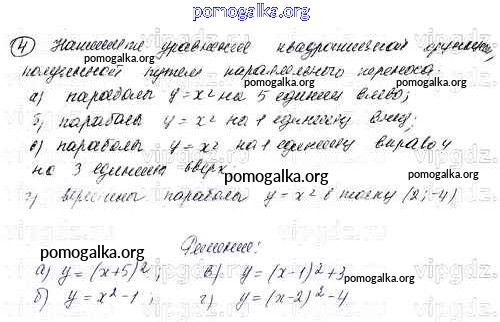 pomogalka.org
④ Напишите уравнение квадратичной функции,
полученной путем параллельного переноса:
а) параболы y = x² на 5 единиц влево;
б) параболы y = x² на 1 единицу вниз;
в) параболы y = x² на 1 единицу вправо и
на 3 единицы вверх.
pomogalka.org
г) вершины параболы y = x² в точку (2; -4)
pomogalka.org pomogalka.org
Решение:
pomogalka.org
а) y = (x+5)²; в) y = (x-1)² + 3
pomogalka.org
б) y = x² - 1; г) y = (x-2)² - 4
pomogalka.org